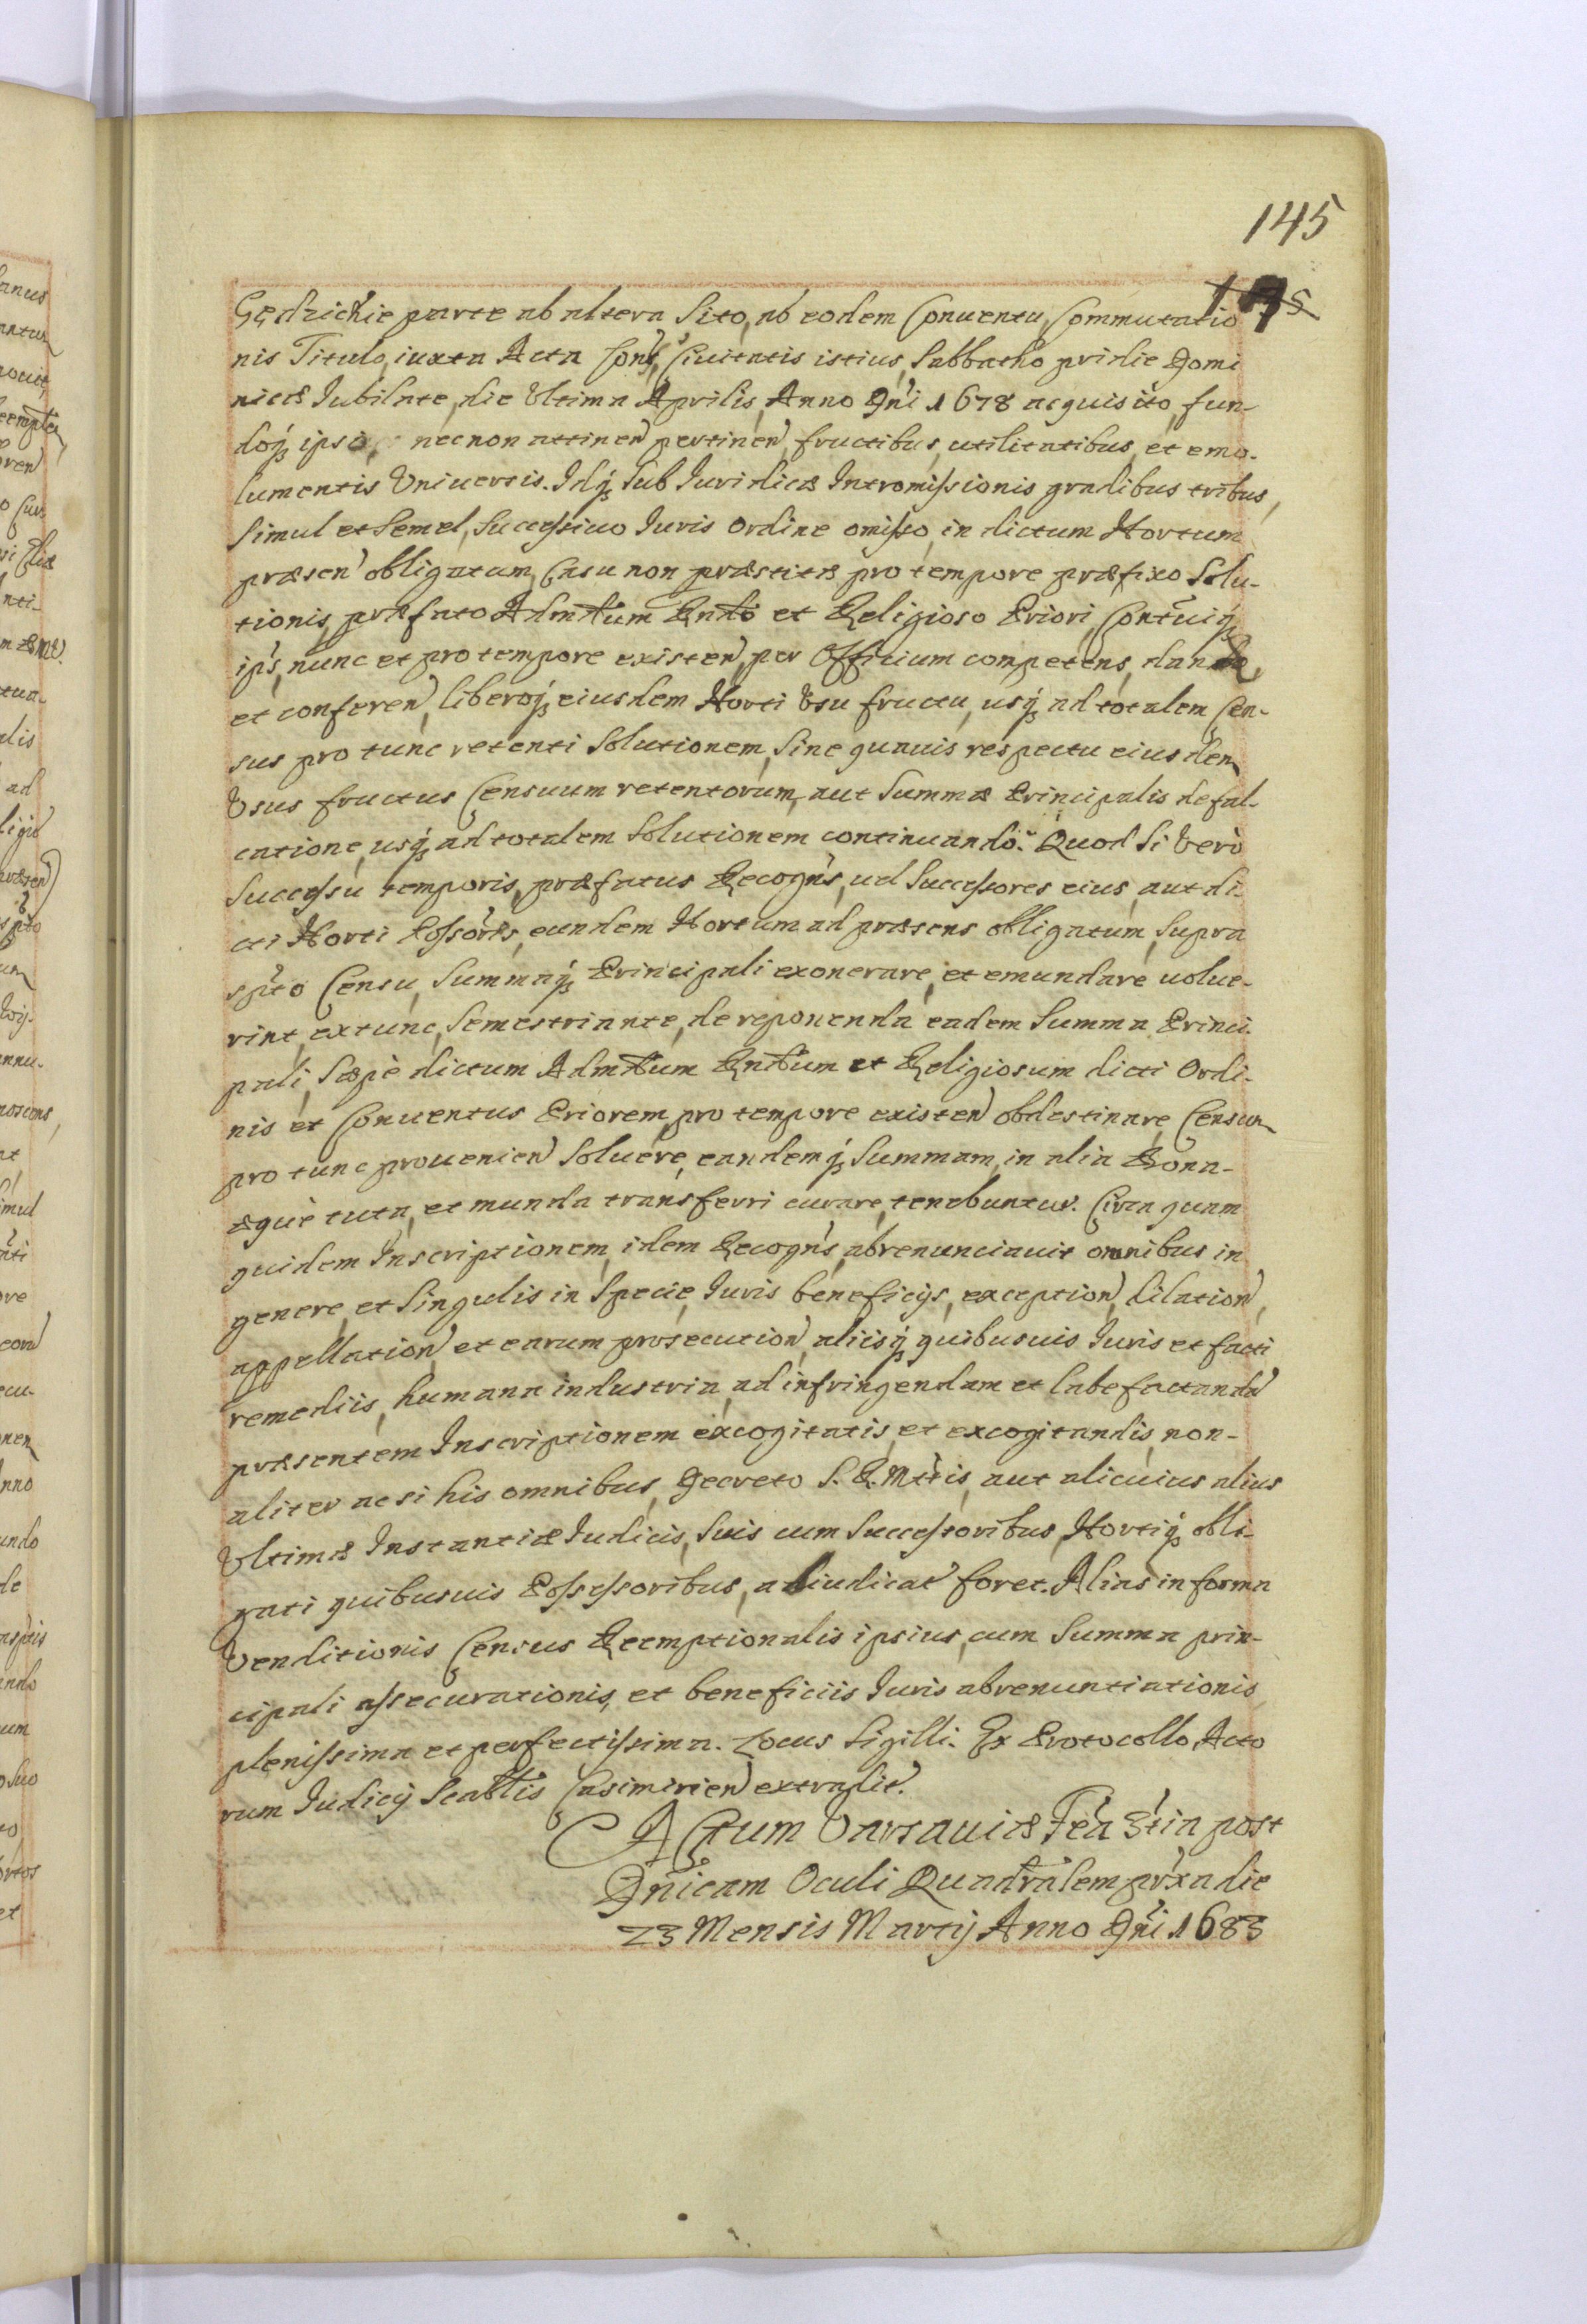 145
Gędzickie parte ab altera Sito, ab eodem Conuentu, Commutatio
nis Titulo, iuxta Acta Cons, Ciuitatis istius, Sabbatho pridie Domi
nicæ Iubilate, die Vltima Aprilis, Anno Dni 1678 acquisito, fun-
doq ipso nec non attinen pertinen, fructibus, utilitatibus, et emo-
lumentis Vniuersis. Idq Sub Iuridicæ Intromissionis gradibus tribus,
Simul et Semel, Successiuo Iuris Ordine omisso, in dictum Hortum
præsen obligatum, Casu non præstitæ pro tempore præfixo Solu-
tionis, præfato Admtum Rndo et Religioso Priori, Contuiq
ips, nunc et pro tempore existen, per Officium competens, danda,
et conferen, liberoq eiusdem Horti Vsu fructu, usq ad totalem Cen-
sus pro tunc retenti Solutionem, Sine quauis respectu eiusdem
Vsus fructus Censuum retentorum, aut Summæ Principalis defal-
catione, usq ad totalem Solutionem continuando. Quod Si Verò
Successu temporis, præfatus Recogns, ud Successores eius, aut di-
cti Horti Possores, eundem Hortum ad præsens obligatum, Supra
spto Censu, Summaq Principali exonerare, et emundare uolue-
rint, extunc, Semestri ante, de reponenda eadem Summa Princi-
pali, Sæpè dictum Admtum Rndum et Religiosum dicti Ordi-
nis et Conuentus Priorem, pro tempore existen obdestinare, Censum
pro tunc prouenien Soluere, eandemq Summam, in alia Bona-
æquè tuta, et munda transferri curare, tenebuntur. Circa quam
quidem Inscriptionem, idem Recogns, abrenunciauit omnibus in
genere, et Singulis in Specie, Iuris beneficijs, exception, dilation,
appellation, et earum prosecution, aliisq quibusuis Iuris et facti
remediis, humana industria, ad infringendam et labefactanda
præsentem Inscriptionem excogitatis, et excogitandis, non-
aliter ac si his omnibus, Decreto S. R. Mttis, aut alicuius alius
Vltimæ Instantiæ Iudicis, Suis cum Successoribus, Hortiq obli-
gati quibusuis Possessoribus, adiudicat foret. Alias in forma
Venditionis Census Reemptionalis ipsius, cum Summa prin-
cipali assecurationis, et beneficiis Iuris abrenuntiationis,
plenissima et perfectissima. Locus Sigilli. Ex Protocollo Acto
rum Iudicij Scabtis Casimirien extradit.
Actum Varsauiæ Fea 3tia post
Dnicam Oculi Quadralem prxa die
23 Mensis Martij Anno Dni 1683